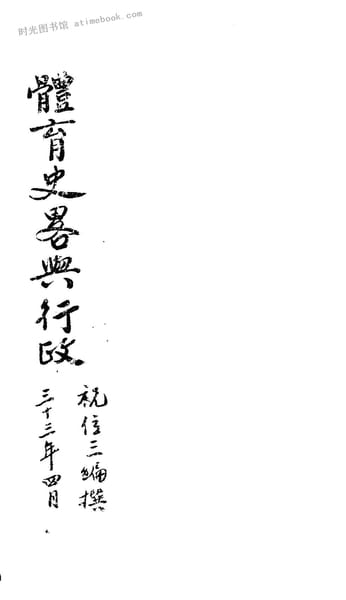 时光图书馆 atimebook.com
體育史畧與行政
祝位三編撰
三十三年四月